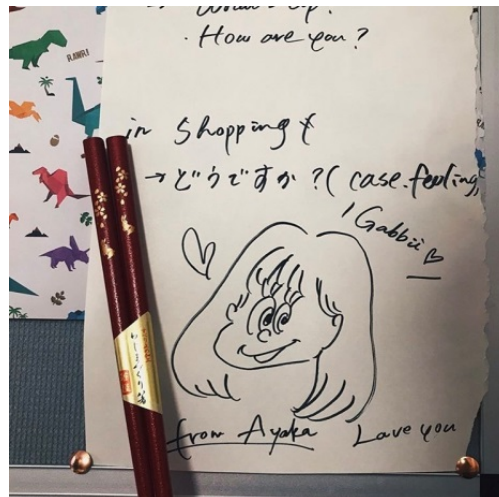 · How are you?
in Shopping
→どうですか?(case.feeling
Gabbii
from Ayaka Love you
RAWR!